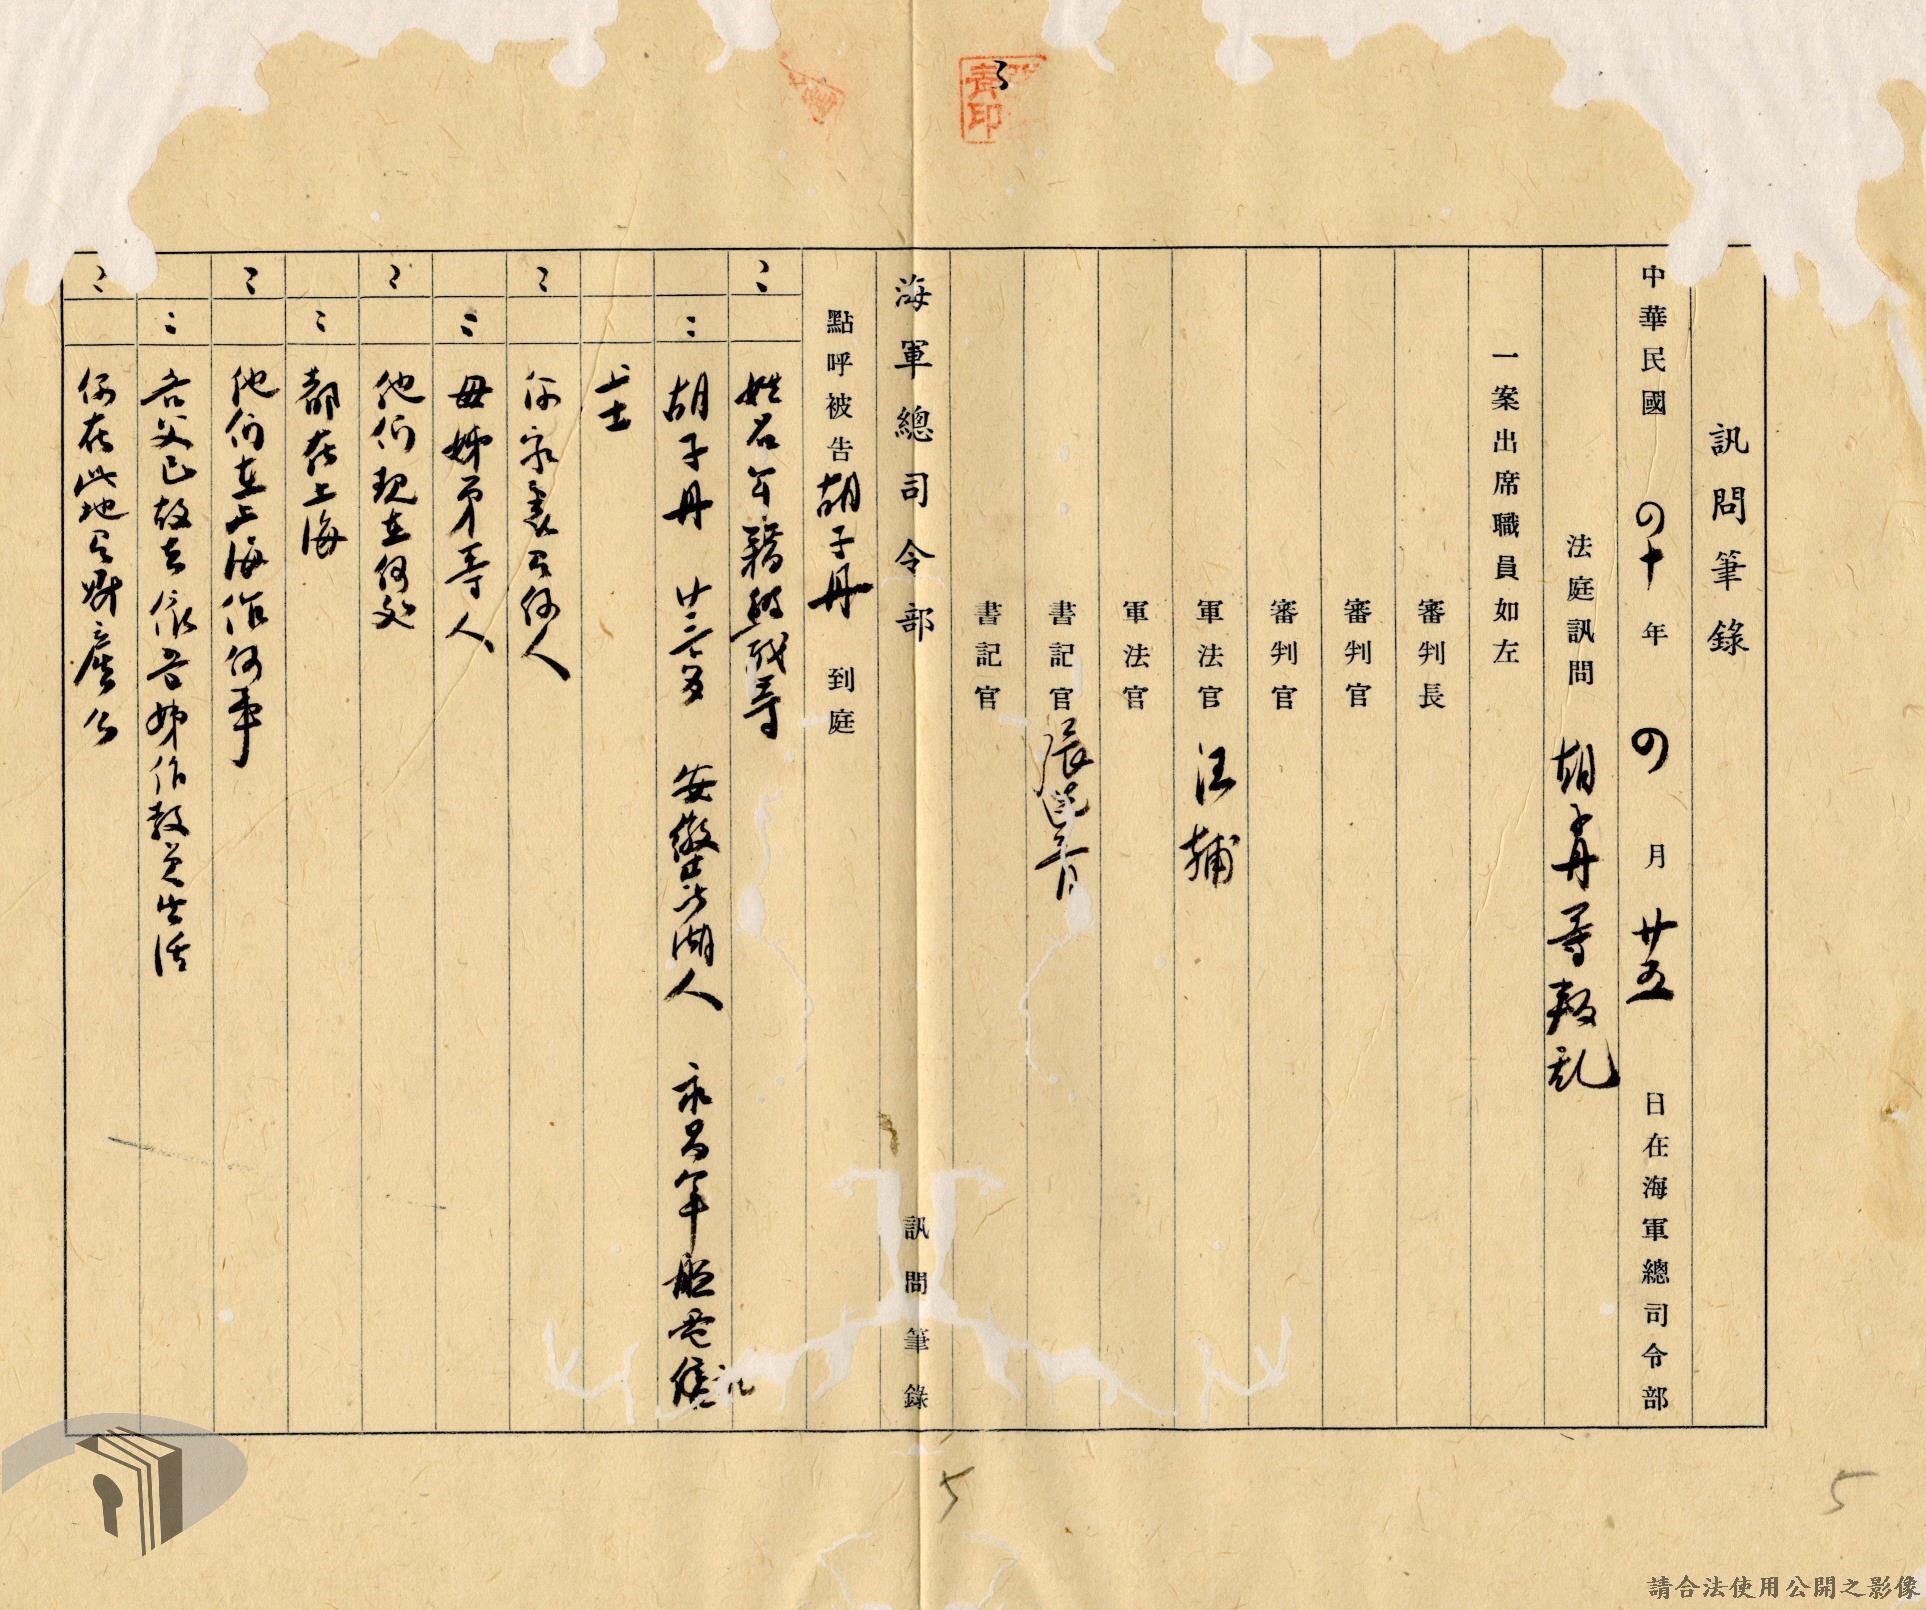 訊問筆錄
中華民國四十年四月廿五日在海軍總司令部
法庭訊問胡子丹等叛乱
一案出席職員如左
審判長
審判官
審判官
軍法官 汪輔
軍法官
書記官 張
書記官
海軍總司令部 訊問筆錄
點呼被告胡子丹 到庭
姓名年籍級職等
胡子丹 廿三歲 安徽蕪湖人 永昌軍艦電信
上士
你家裏有何人
母姊弟等人
他们現在何处
都在上海
他们在上海作何事
吾父已故去 依吾姊作教员生活
你在此地有財產么
5
5
請合法使用公開之影像